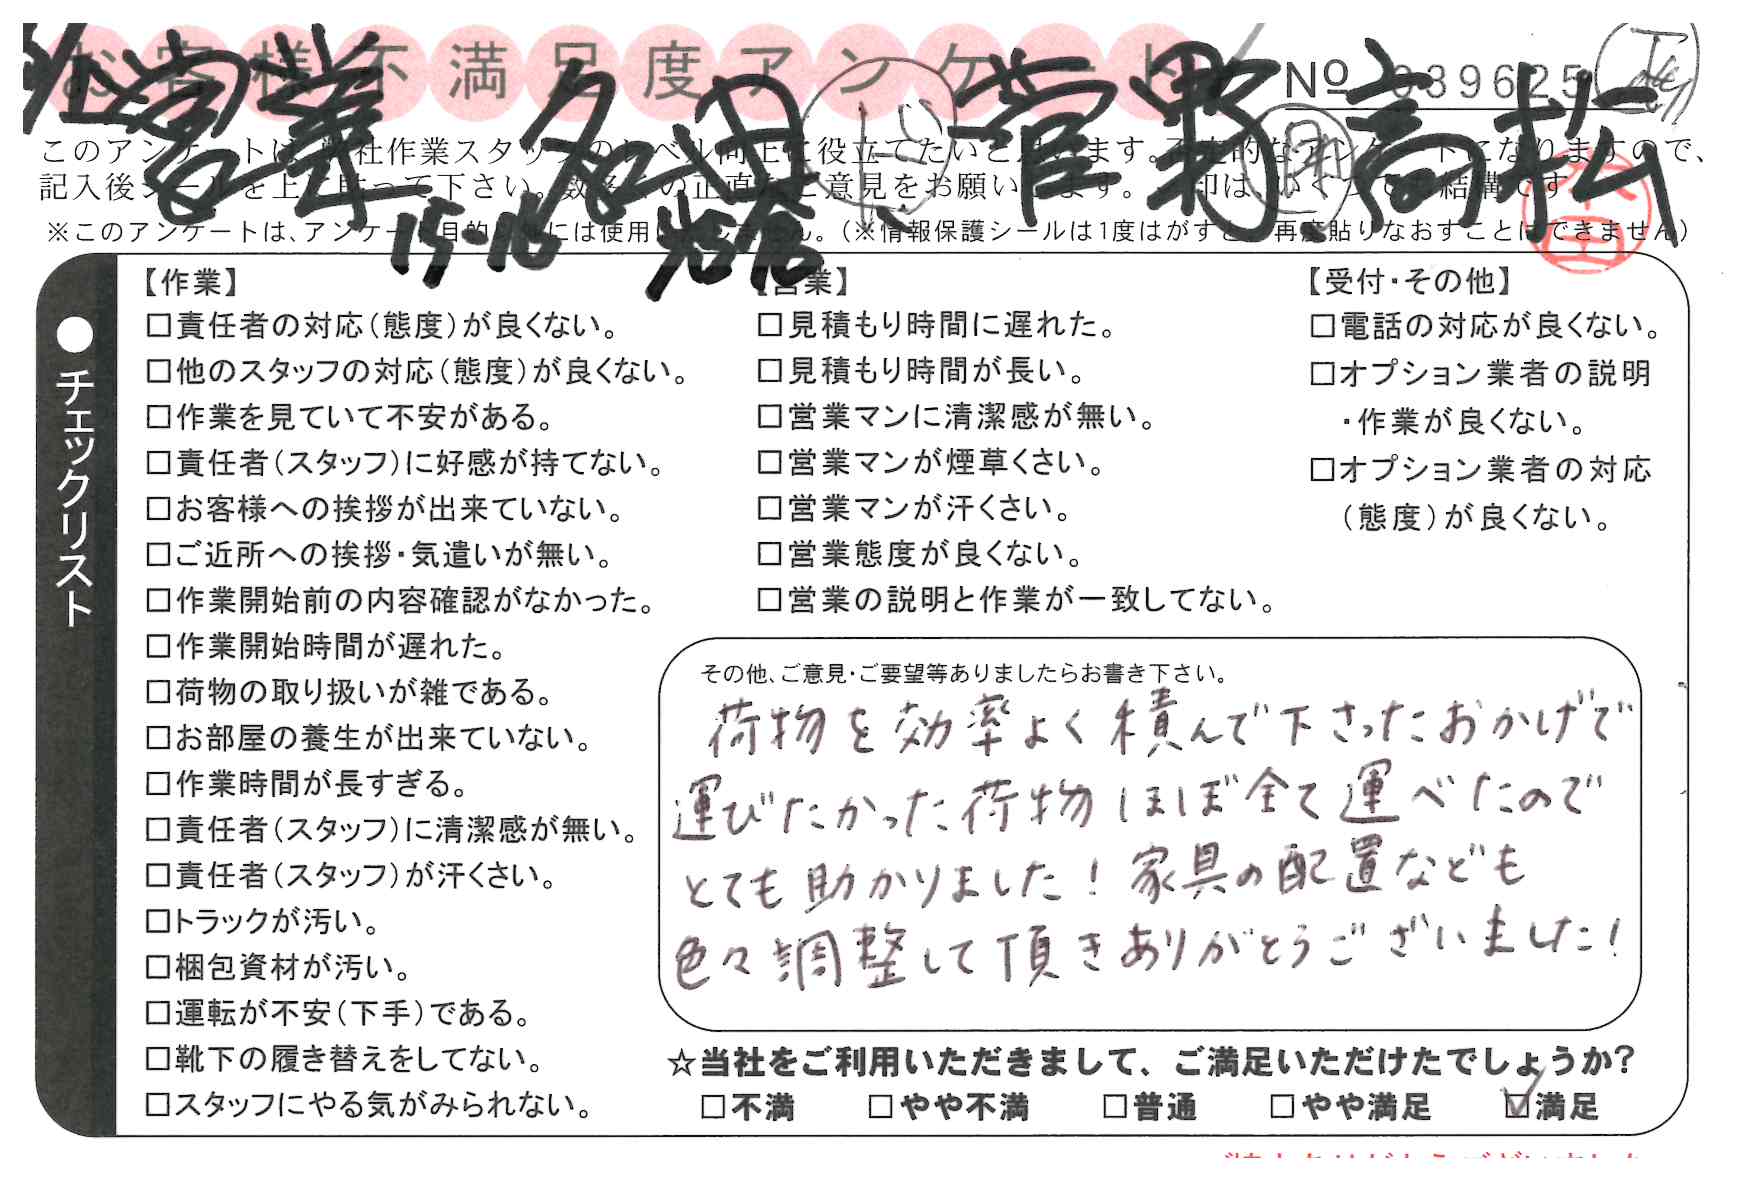 お客様不満足度アンケート
営業 名田 菅野 高松
No 039625
15-16
このアンケートは、社作業スタッフのレベル向上に役立てたいと思います。なアンケートになりますので、
記入後シールを上に貼って下さい。の正直なご意見をお願いします。印はいくつでも結構です
※このアンケートは、アンケート目的以外には使用しません。(※情報保護シールは1度はがすと、再度貼りなおすことはできません)
●チェックリスト
【作業】
□責任者の対応(態度)が良くない。
□他のスタッフの対応(態度)が良くない。
□作業を見ていて不安がある。
□責任者(スタッフ)に好感が持てない。
□お客様への挨拶が出来ていない。
□ご近所への挨拶・気遣いが無い。
□作業開始前の内容確認がなかった。
□作業開始時間が遅れた。
□荷物の取り扱いが雑である。
□お部屋の養生が出来ていない。
□作業時間が長すぎる。
□責任者(スタッフ)に清潔感が無い。
□責任者(スタッフ)が汗くさい。
□トラックが汚い。
□梱包資材が汚い。
□運転が不安(下手)である。
□靴下の履き替えをしてない。
□スタッフにやる気がみられない。
【営業】
□見積もり時間に遅れた。
□見積もり時間が長い。
□営業マンに清潔感が無い。
□営業マンが煙草くさい。
□営業マンが汗くさい。
□営業態度が良くない。
□営業の説明と作業が一致してない。
【受付・その他】
□電話の対応が良くない。
□オプション業者の説明
・作業が良くない。
□オプション業者の対応
(態度)が良くない。
その他、ご意見・ご要望等ありましたらお書き下さい。
荷物を効率よく積んで下さったおかげで
運びたかった荷物ほぼ全て運べたので
とても助かりました!家具の配置なども
色々調整して頂きありがとうございました!
☆当社をご利用いただきまして、ご満足いただけたでしょうか?
□不満 □やや不満 □普通 □やや満足 ☑満足